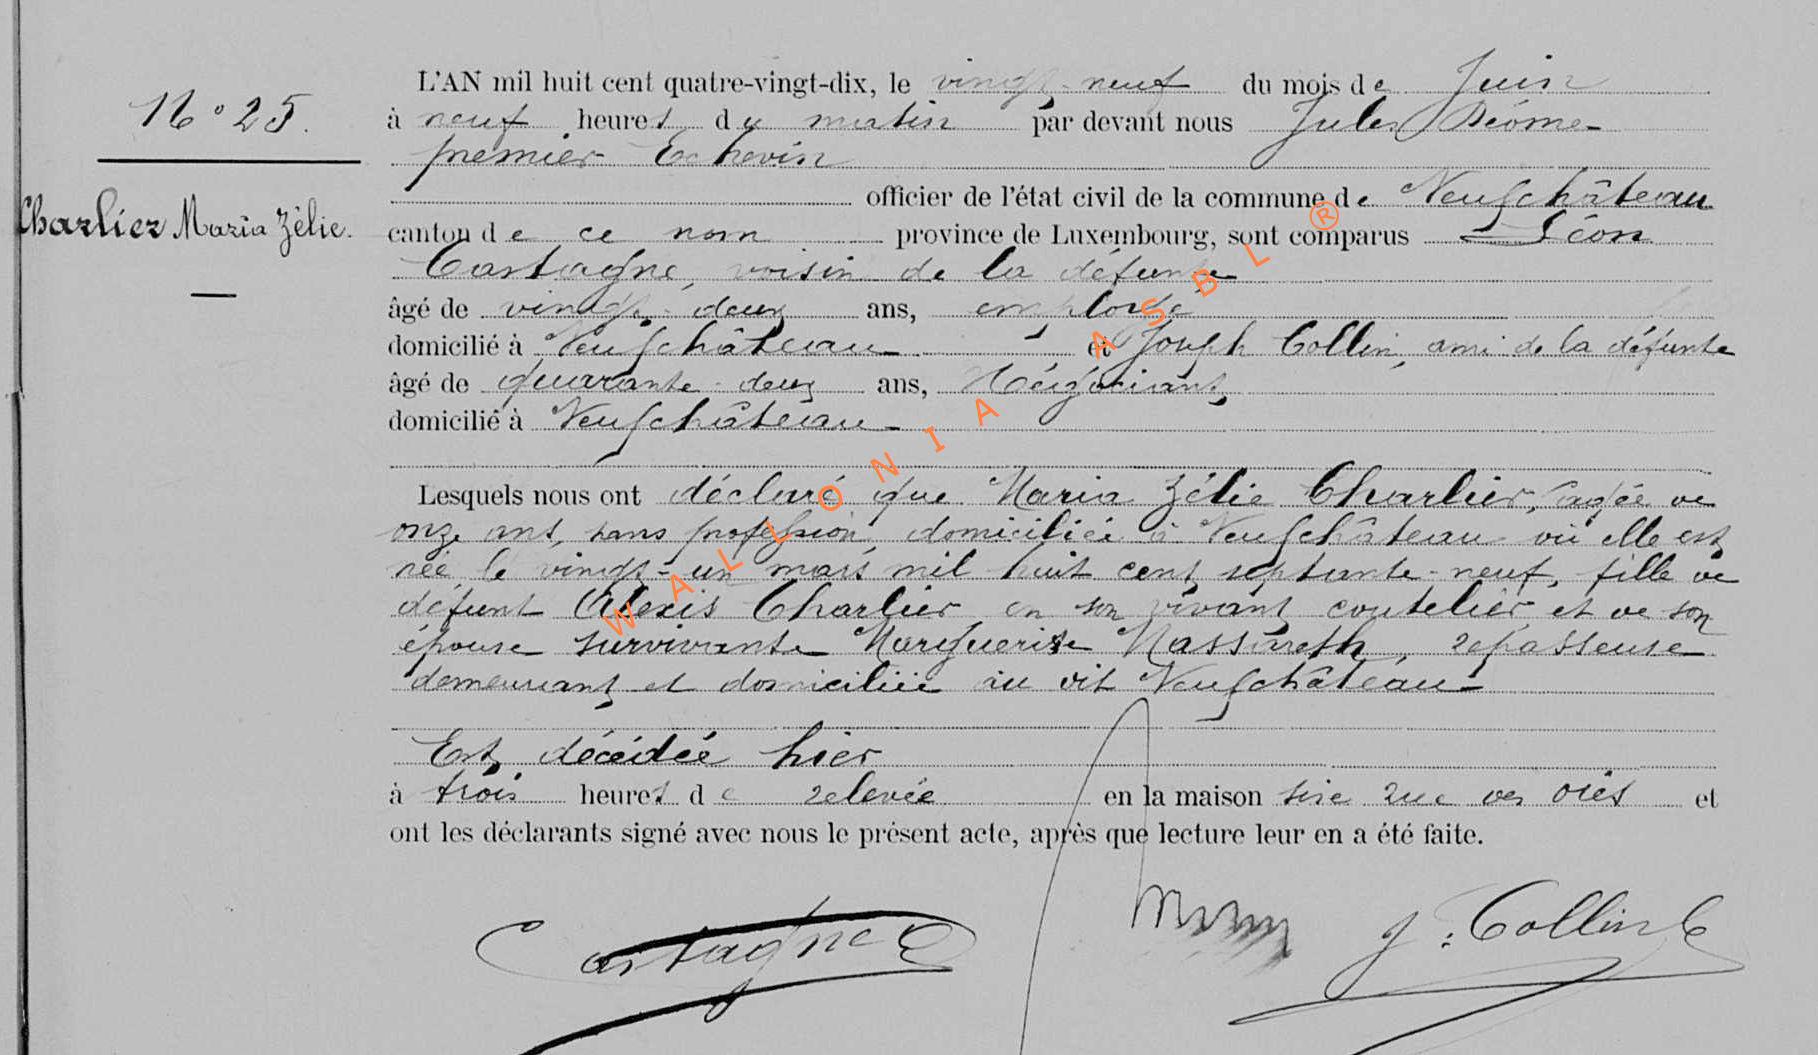 N° 25.
Charlier Maria Zélie.
L'AN mil huit cent quatre-vingt-dix, le vingt-neuf du mois de Juin
à neuf heures du matin par devant nous Jules
premier Echevin
officier de l'état civil de la commune de Neufchâteau
canton de ce nom province de Luxembourg, sont comparus Léon
Castagne, voisin de la défunte
âgé de vingt-deux ans, employé
domicilié à Neufchâteau et Joseph Collin, ami de la défunte
âgé de quarante-deux ans, Négociant
domicilié à Neufchâteau
Lesquels nous ont déclaré que Maria Zélie Charlier, âgée de
onze ans, sans profession, domiciliée à Neufchâteau où elle est
née le vingt-un mars mil huit cent septante-neuf, fille de
défunt Alexis Charlier en son vivant coutelier et de son
épouse survivante Marguerite Massareth, repasseuse
demeurant et domiciliée au dit Neufchâteau
Est décédée hier
à trois heures de relevée en la maison sise rue des oies et
ont les déclarants signé avec nous le présent acte, après que lecture leur en a été faite.
Castagne J. Collin
WALLONIA ASBL ®